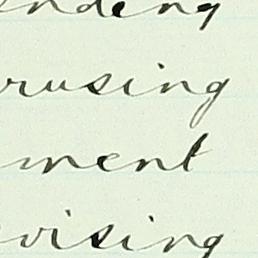 nding
rusing
ment
vising